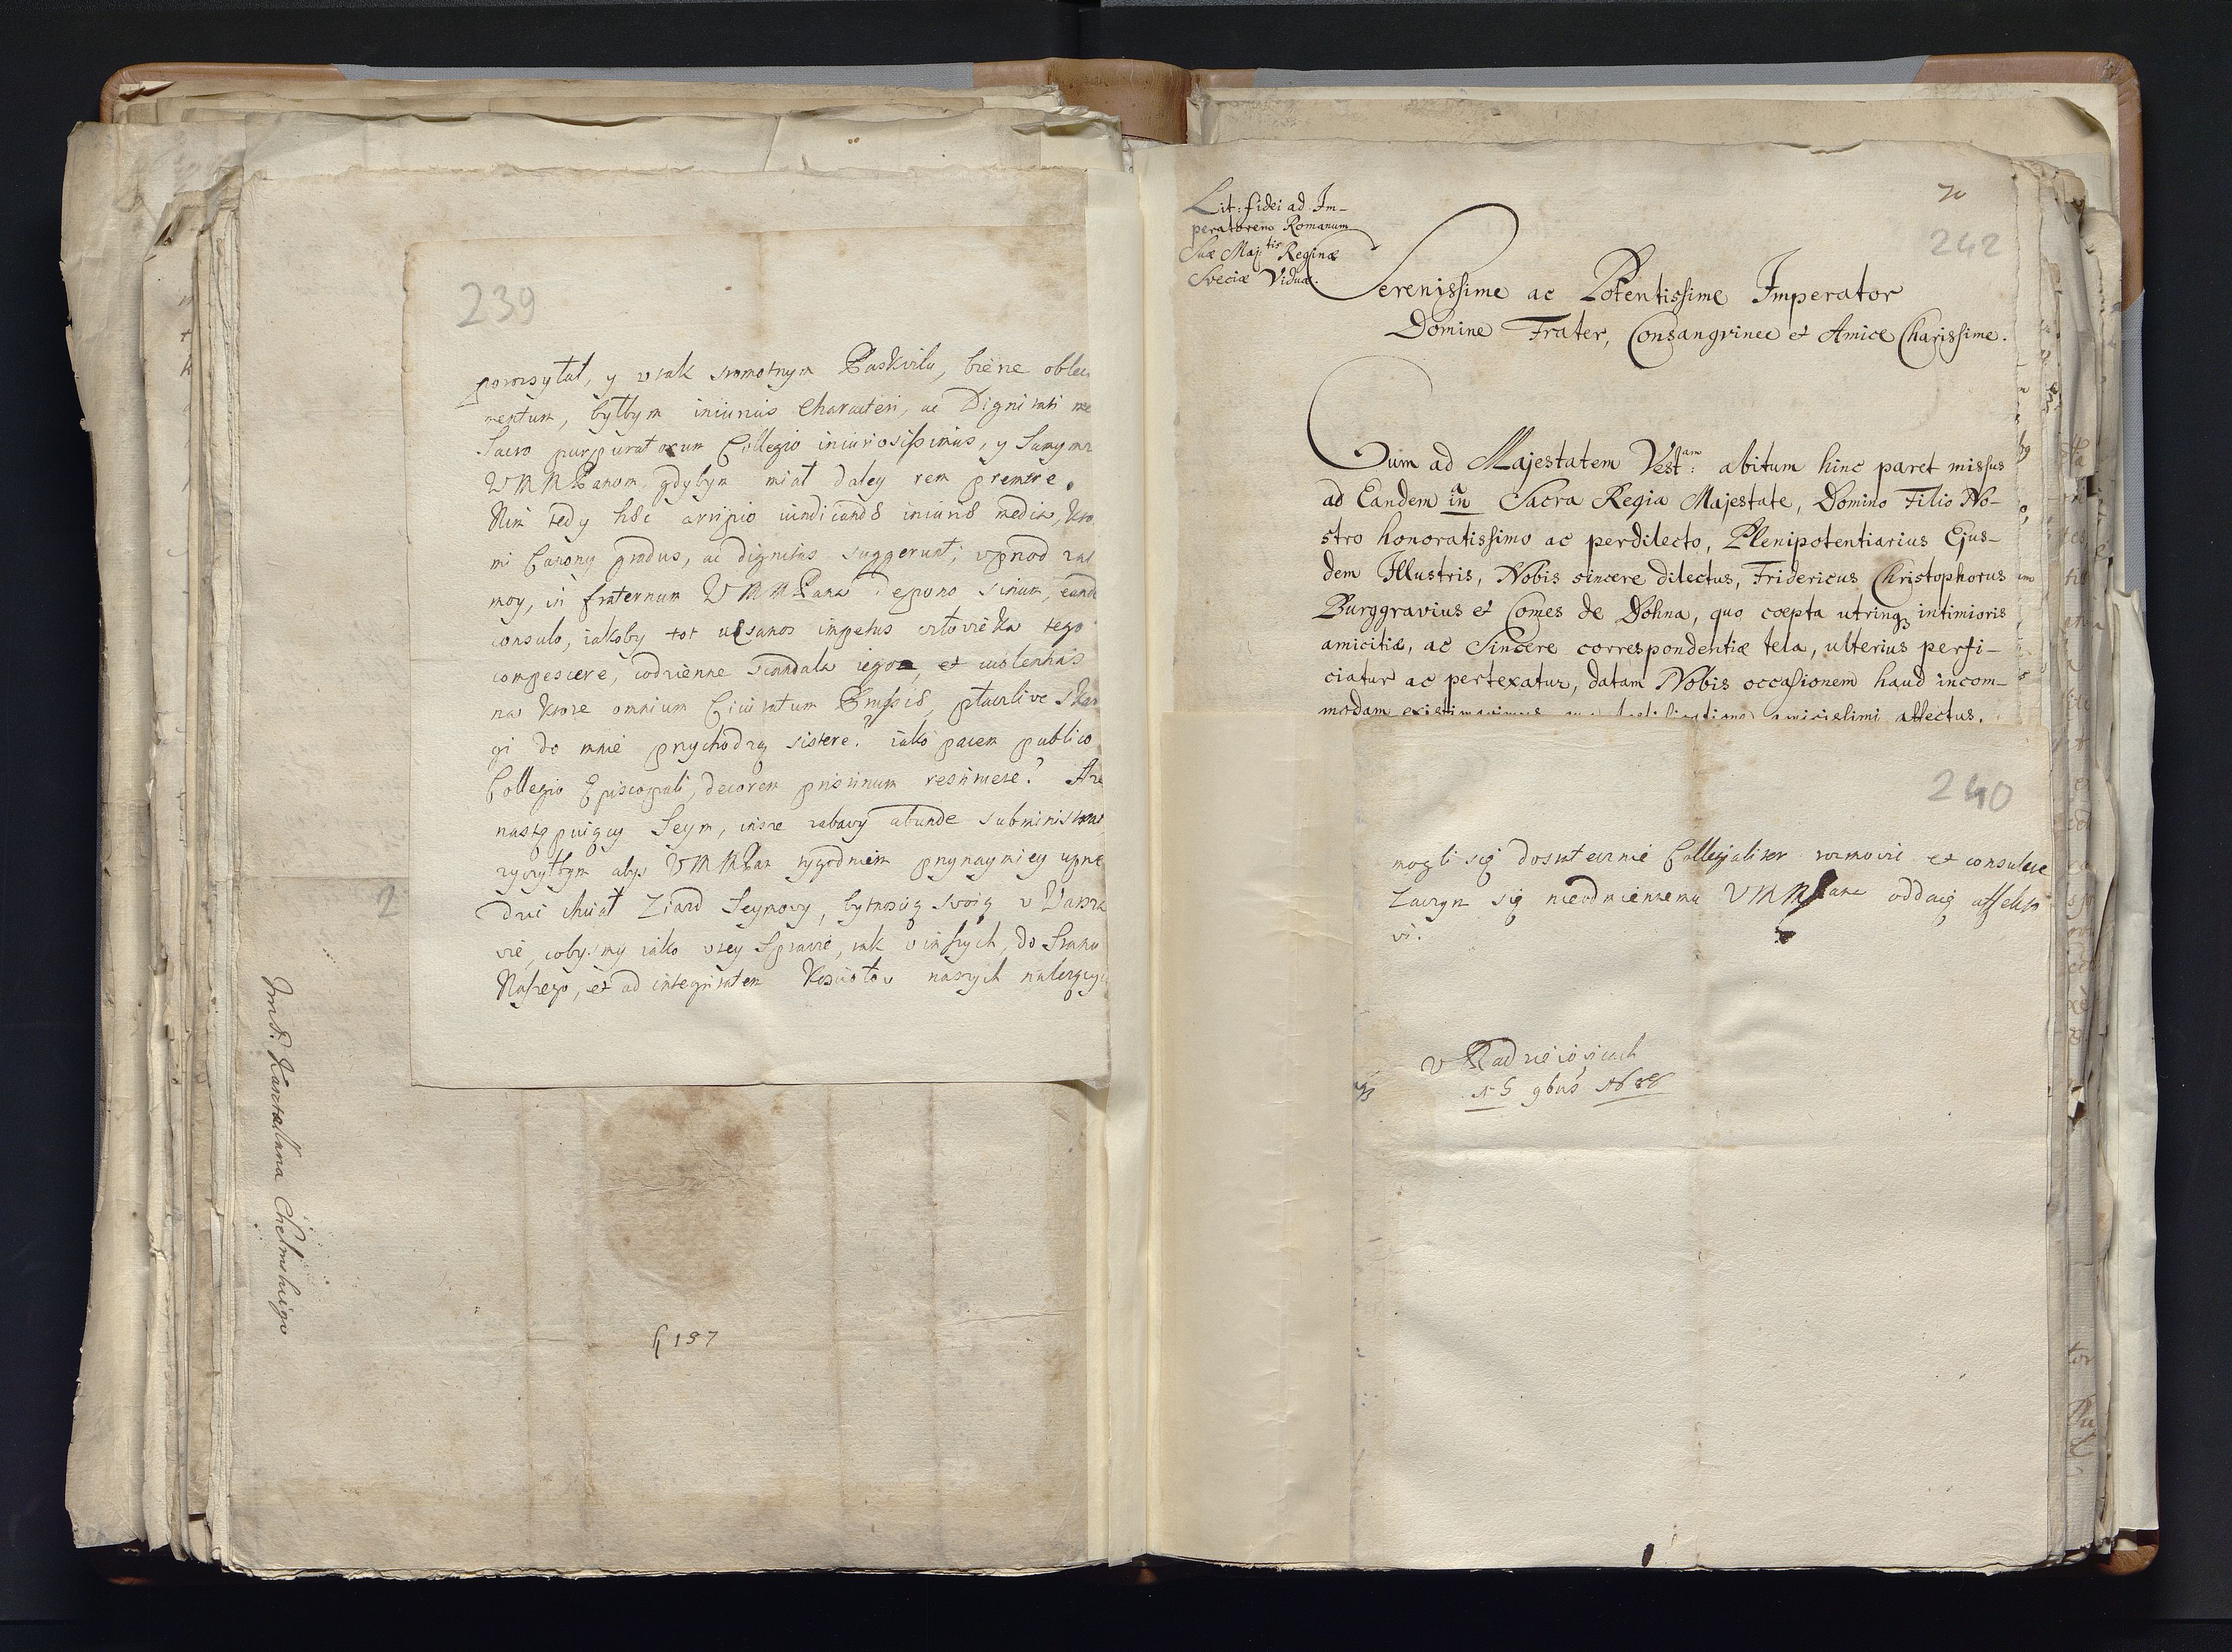 239
porozsyłał, y w tak sromotnym Paskwilu, bierze oblec
mentum, byłbym iniurius Characteri, ac Dignitati me
Sacro purpuratorum Collegio iniuriosissimus, y Samym
WMMPanom, gdybym miał daley rem premere.
Nim tedy hæc arripio vindicandæ iniuriæ media, kto
mi Carony gradus, ac dignitas suggerunt; wprzod
moy, in fraternum WMMPana depono sinum, eand
consulo, iakoby tot vesanos impetus człowieka tego
compescere, codzienne scandala iego, et violentias
na ktore omnium Civitatum Prussiæ, płaczliwe skar
gi do mnie przychodzą sistere? iako pacem publico
Collegio Episcopali, decorem pristinum restituere? Aze
następuiący Seym, insze zabawy abunde subministra
zyczyłbym abys WMMPan tygodniem przynaymniey uprze
dzić chciał Ziazd Seymowy, bytnością swoią w Warsza
wie, cobysmy iako w tey Sprawie, tak w inszych, do Stanu
Naszego, et ad integritatem Kosciołow naszych należący
2
Jmći: Kasztellana Chełmskiego
h 187
Lit: fidei ad Im-
peratorem Romanum
Suæ Maj:tis Reginæ
Sveciæ Viduæ.
70
242
Serenissime ac Potentissime Imperator
Domine Frater, Consangvinee et Amice Charissime.
Cum ad Majestatem Vest:am abitum hinc paret missus
ad Eandem a Sacra Regia Majestate, Domino Filio No-
stro honoratissimo ac perdilecto, Plenipotentiarius Ejus-
dem Illustris, Nobis sincere dilectus, Fridericus Christophorus
Burggravius et Comes de Dohna, quo coepta utrinq3 intimioris
amicitiæ, ac Sincere correspondentiæ tela, ulterius perfi-
ciatur ac pertexatur, datam Nobis occasionem haud incom-
modam existimavimus amicissimi affectus,
240
mogli się dostatecznie Collegialiter rozmowić et consulere
Zaczym się nieodmiennemu WMMPana oddaię affekto
wi.
w Radzieiowicach
15 9bris 1688